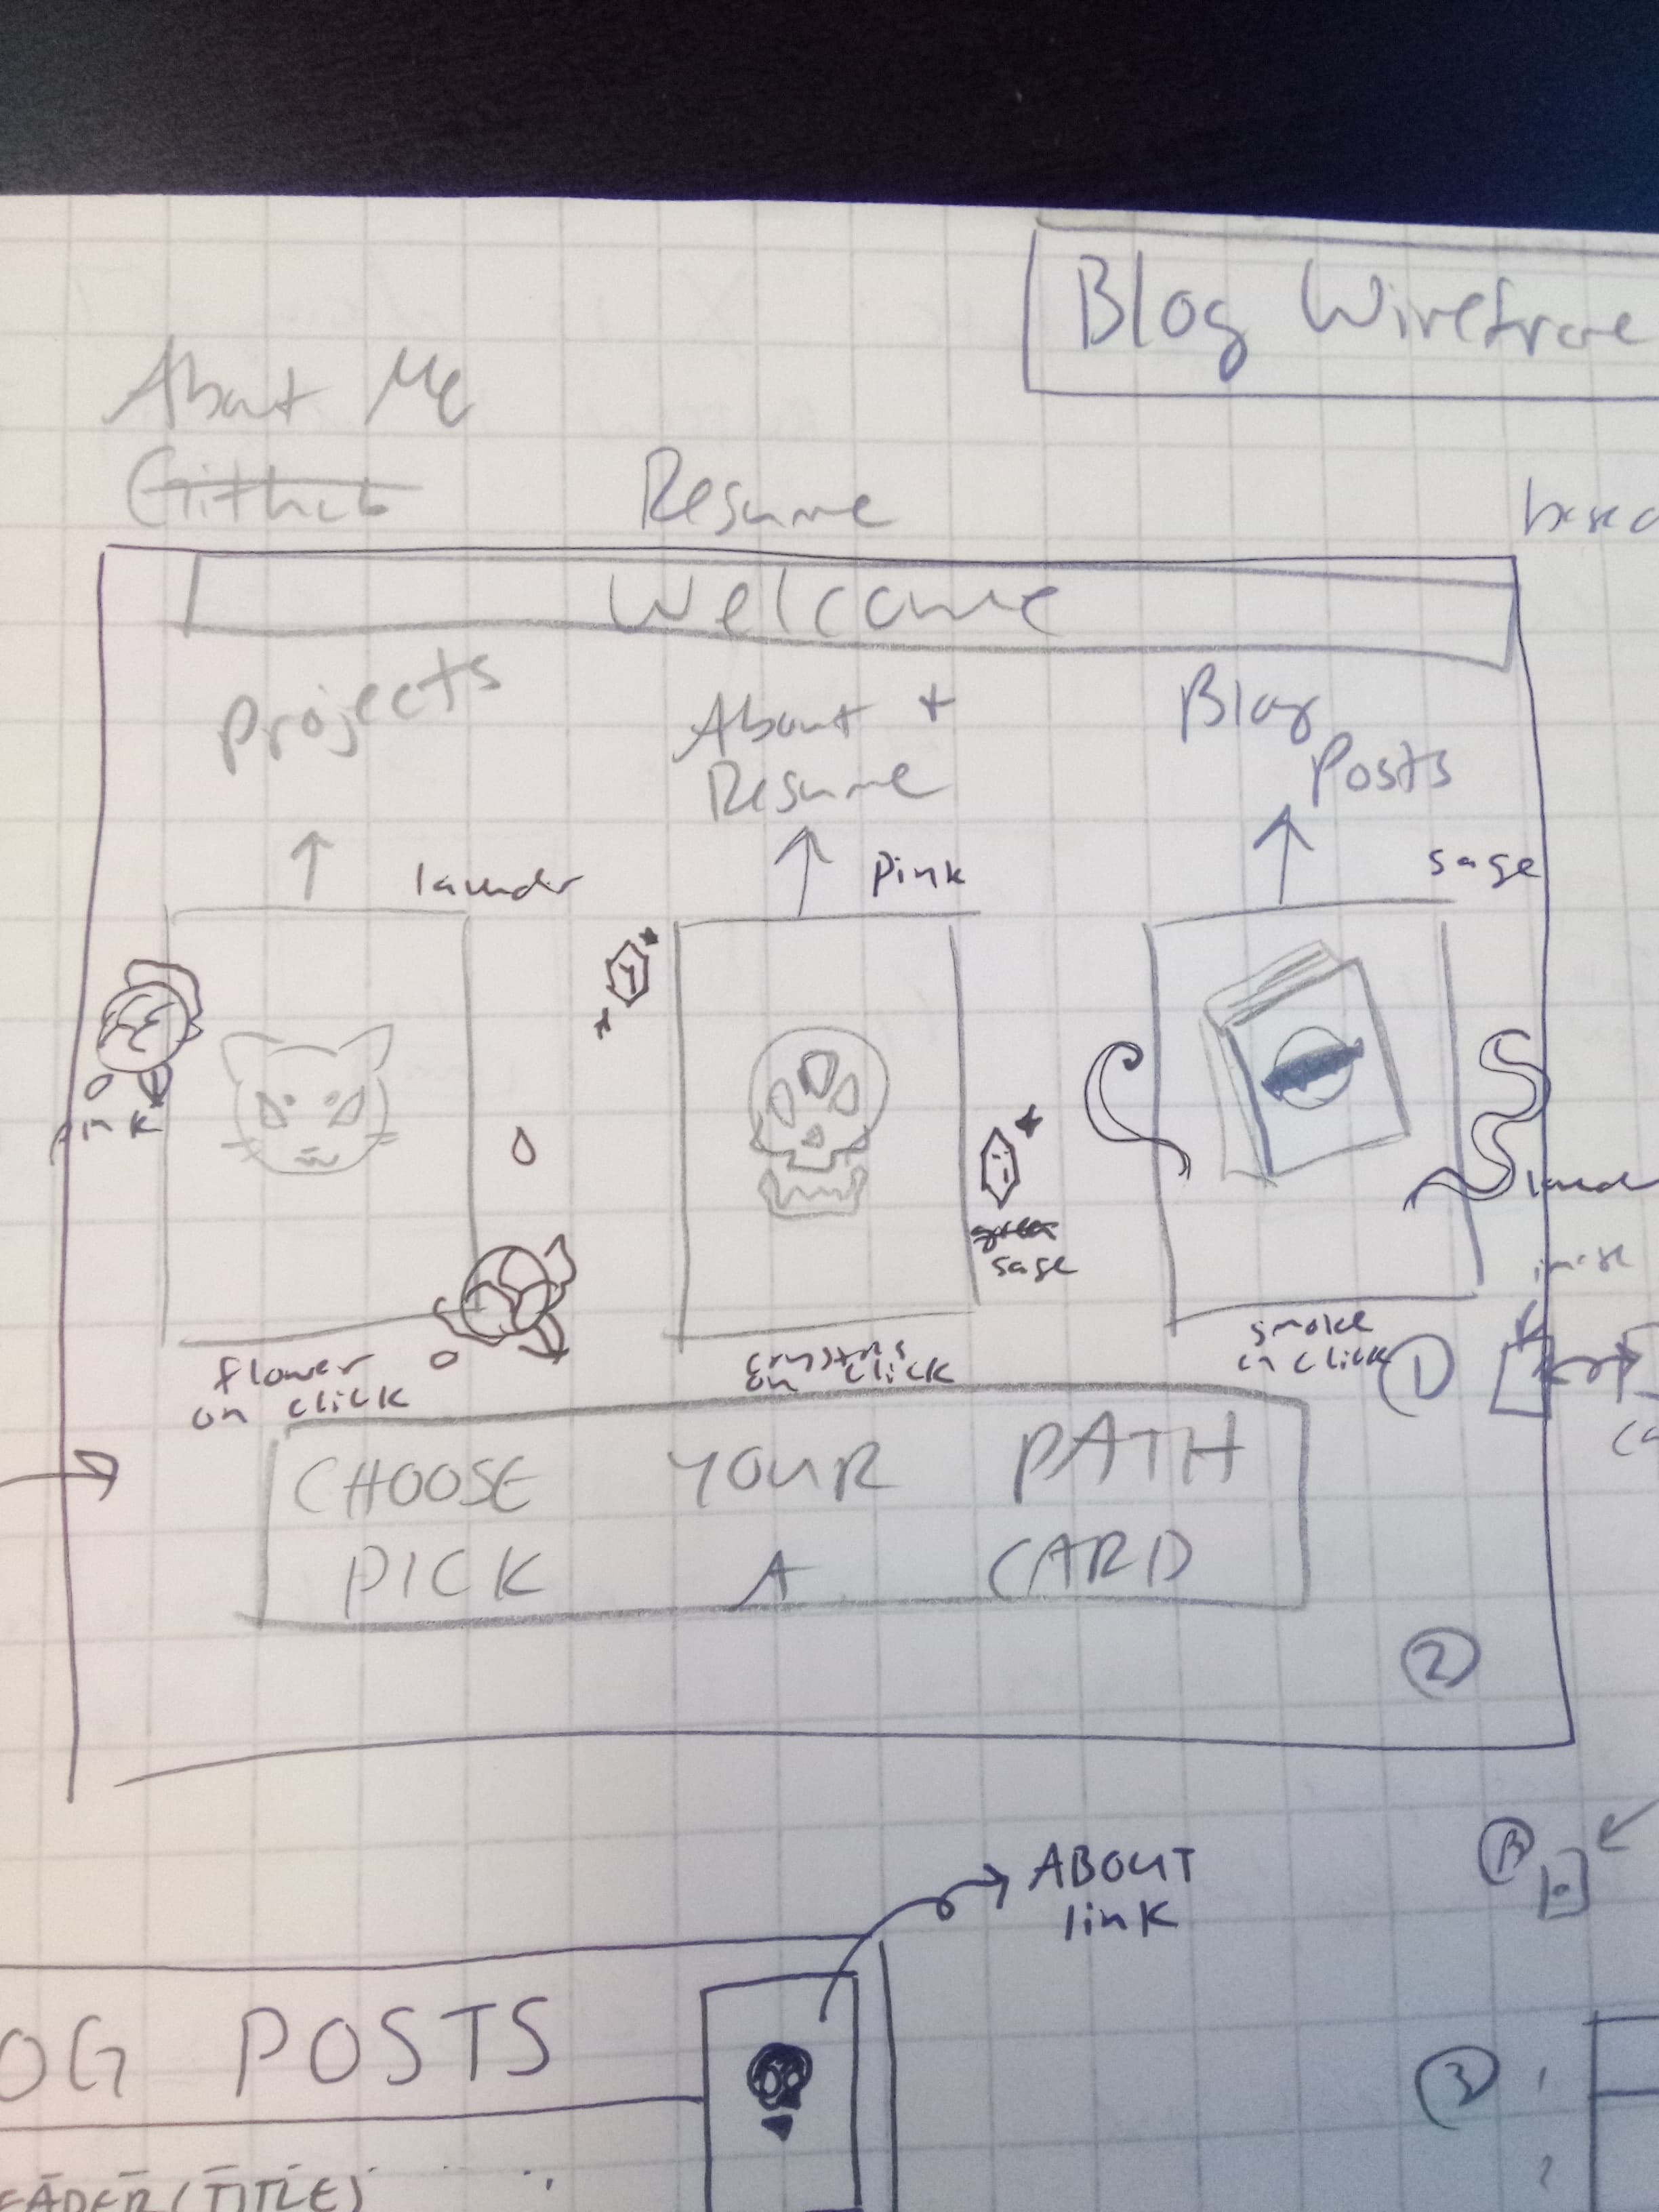 Blog Wireframe
About Me
Github
Resume
Welcome
Projects
About +
Resume
Blog
Posts
lavender
Pink
sage
pink
green
sage
flower
on click
crystals
on click
smoke
on click
1
CHOOSE YOUR PATH
PICK A CARD
2
ABOUT
link
OG POSTS
EADER (TITLE)
3